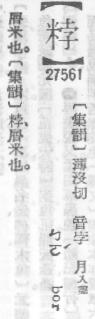 27561
〔集韻〕薄沒切 音孛 月入聲
ㄅㄛˊ bor
屑米也。〔集韻〕、屑米也。